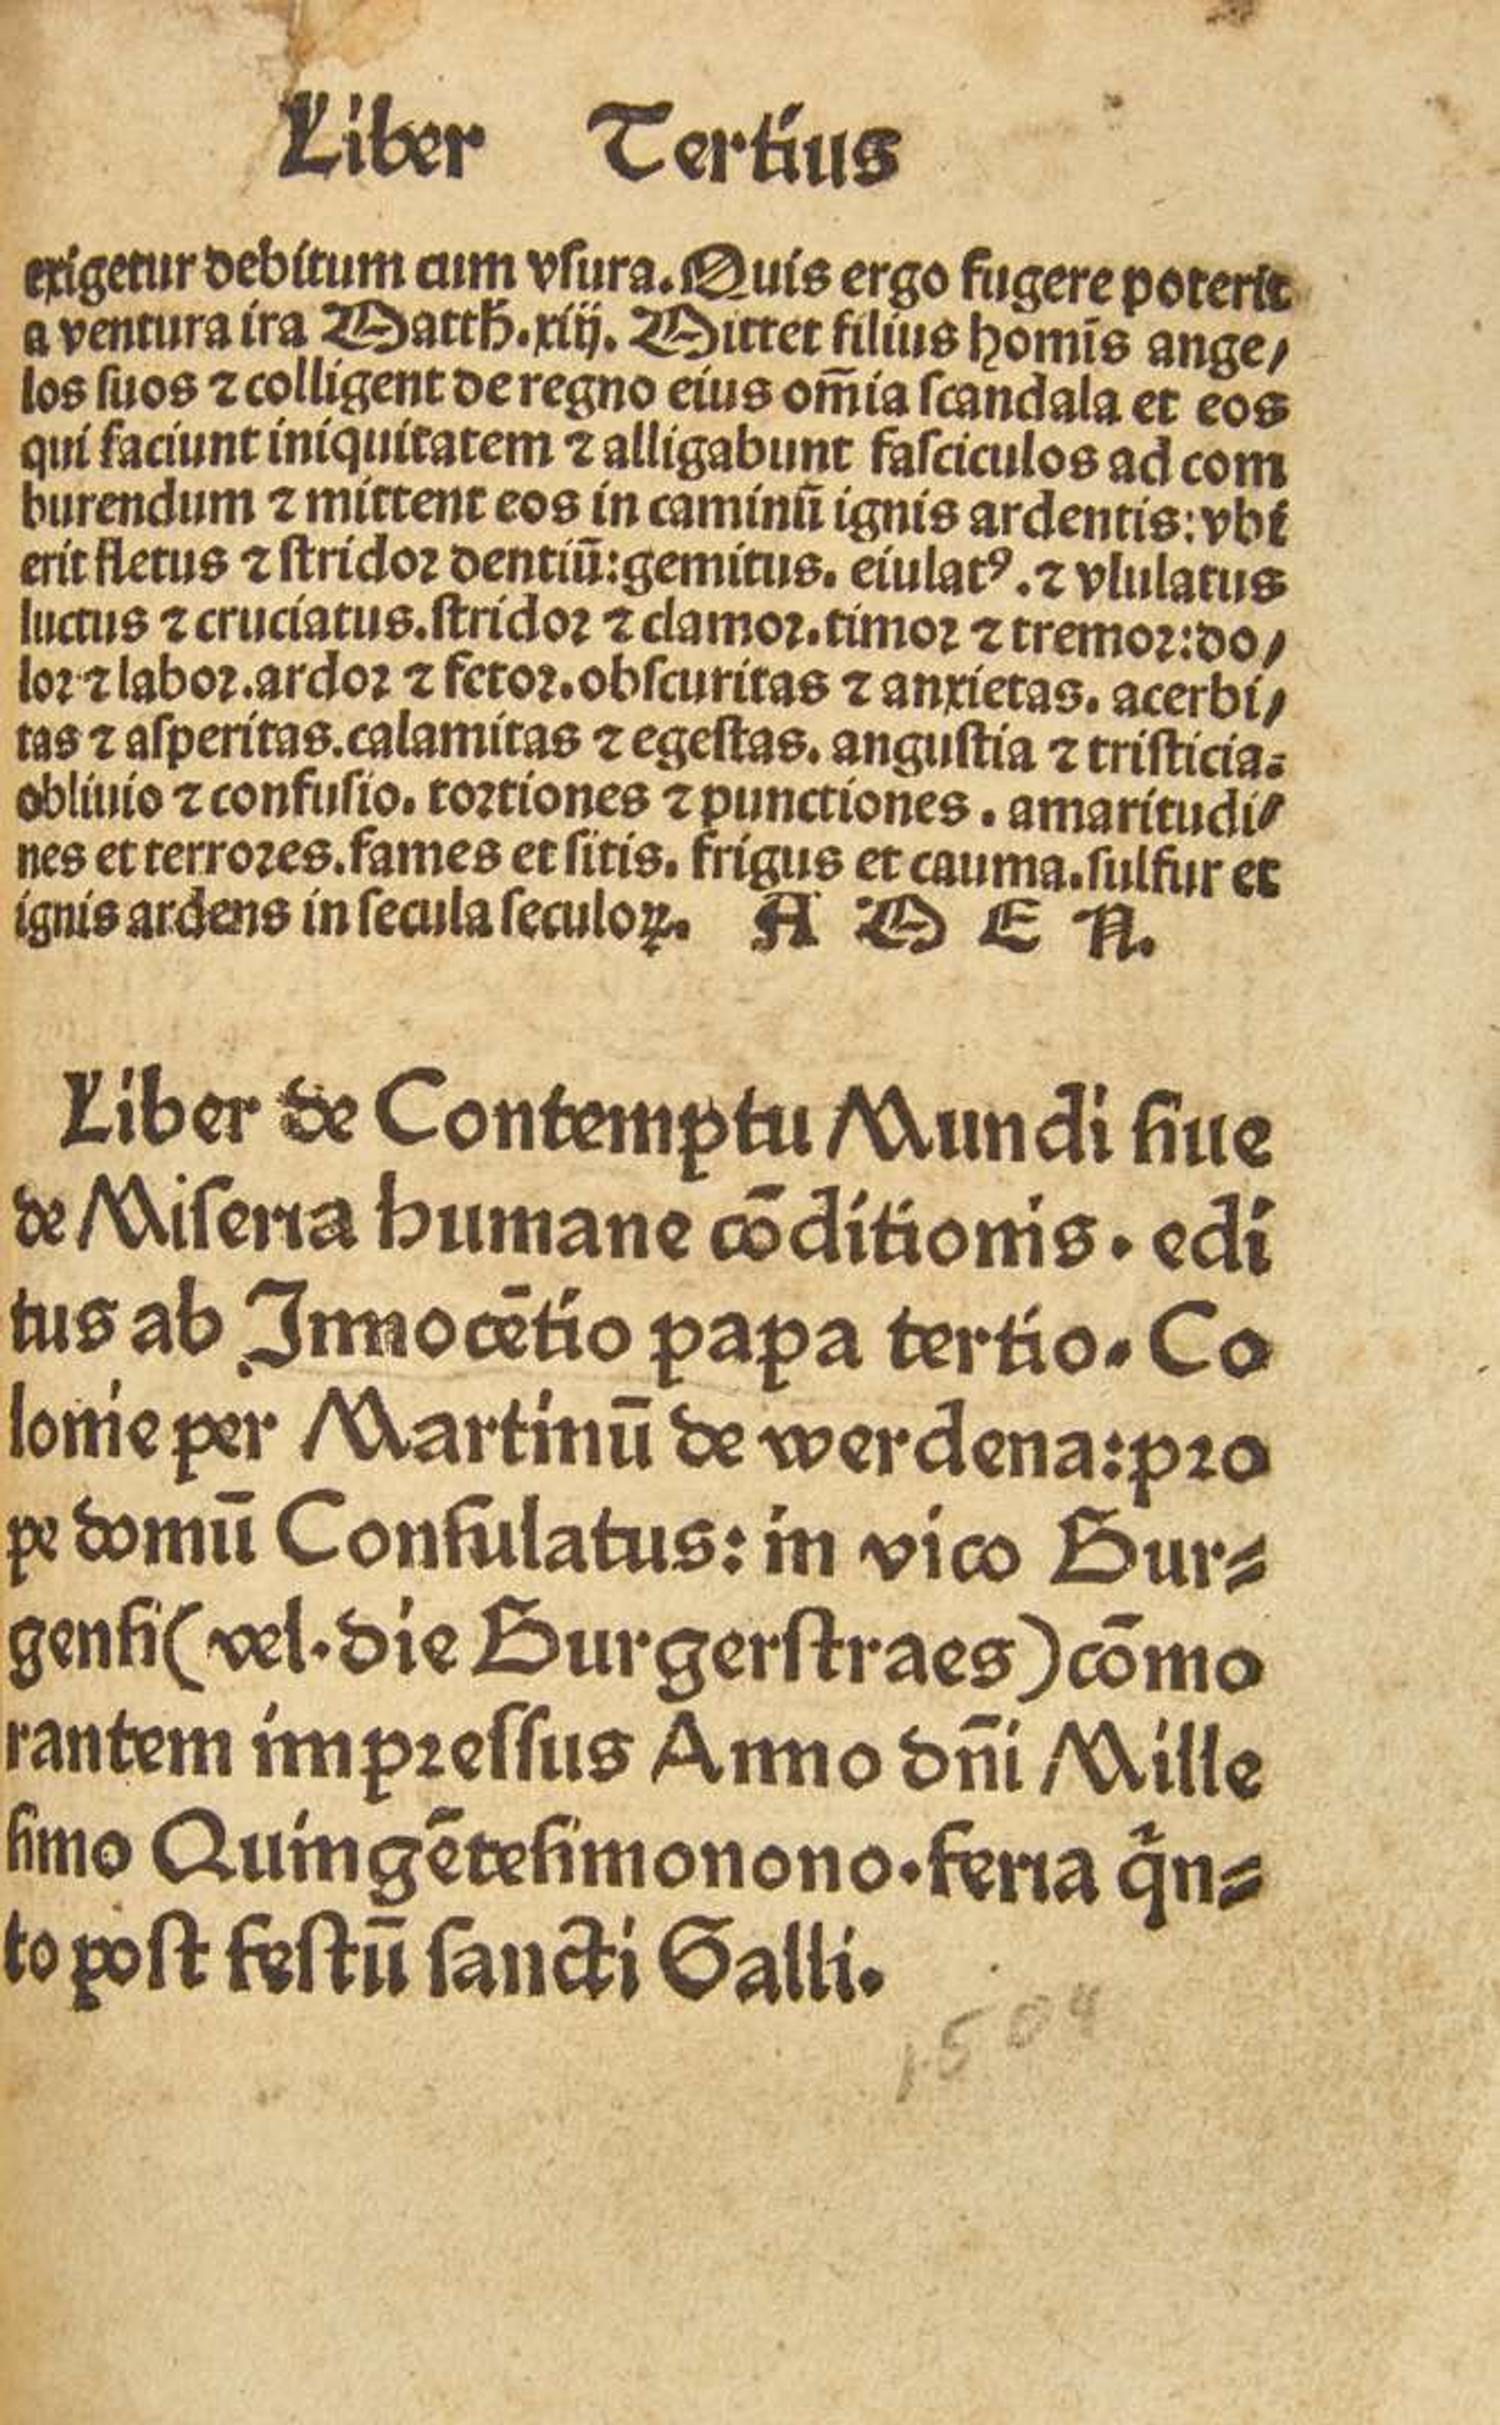 Liber Tertius
exigetur debitum cum vſura. Quis ergo fugere poterit
a ventura ira Matth̄. xiij. Mittet filius homīs ange/
los ſuos ⁊ colligent de regno eius om̄ia ſcandala et eos
qui faciunt iniquitatem ⁊ alligabunt faſciculos ad com
burendum ⁊ mittent eos in caminū ignis ardentis: vbi
erit fletus ⁊ ſtridoꝛ dentiū: gemitus. eiulatꝰ. ⁊ vlulatus
luctus ⁊ cruciatus. ſtridoꝛ ⁊ clamoꝛ. timoꝛ ⁊ tremoꝛ: do/
loꝛ ⁊ laboꝛ. ardoꝛ ⁊ fetoꝛ. obſcuritas ⁊ anxietas. acerbi/
tas ⁊ aſperitas. calamitas ⁊ egeſtas. anguſtia ⁊ triſticia.
obliuio ⁊ confuſio. toꝛtiones ⁊ punctiones. amaritudi/
nes et terroꝛes. fames et ſitis. frigus et cauma. ſulfur et
ignis ardens in ſecula ſeculoꝝ. A M E N.
Liber de Contemptu Mundi ſiue
de Miſeria humane cōditionis. edi
tus ab Innocētio papa tertio. Co
lonie per Martinū de werdena: pꝛo
pe domū Conſulatus: in vico Bur⸗
genſi (vel. die Burgerſtraes) cōmo
rantem impꝛeſſus Anno dn̄i Mille
ſimo Quingēteſimonono. feria qͥn⸗
to poſt feſtū ſancti Galli.
1504